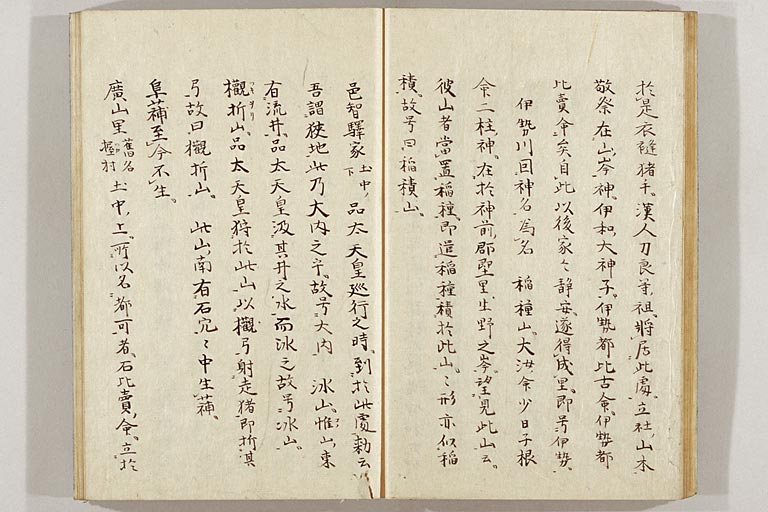 於是衣縫猪手漢人刀良等祖将居此處立社山本
敬祭在山岑神伊和大神子伊勢都比古命伊勢都
比賣命矣自此以後家々静安遂得成里即号伊勢
伊勢川因神名為名 稲種山大汝命少日子根
命二柱神在於神前郡堲里生野之岑望見此山云
彼山者當置稲種即遣稲種積於此山々形亦似稲
積故号曰稲積山
邑智驛家土中下品太天皇巡行之時到於此處勅云
吾謂狭地此乃大内之乎故号大内 氷山惟山東
有流井品太天皇汲其井之水而氷之故号氷山
欟折山品太天皇狩於此山以欟弓射走猪即折其
弓故曰欟折山 此山南有石穴々中生蒲
故号蒲阜至今不生
廣山里舊名握村土中上所以名都可者石比賣命立於